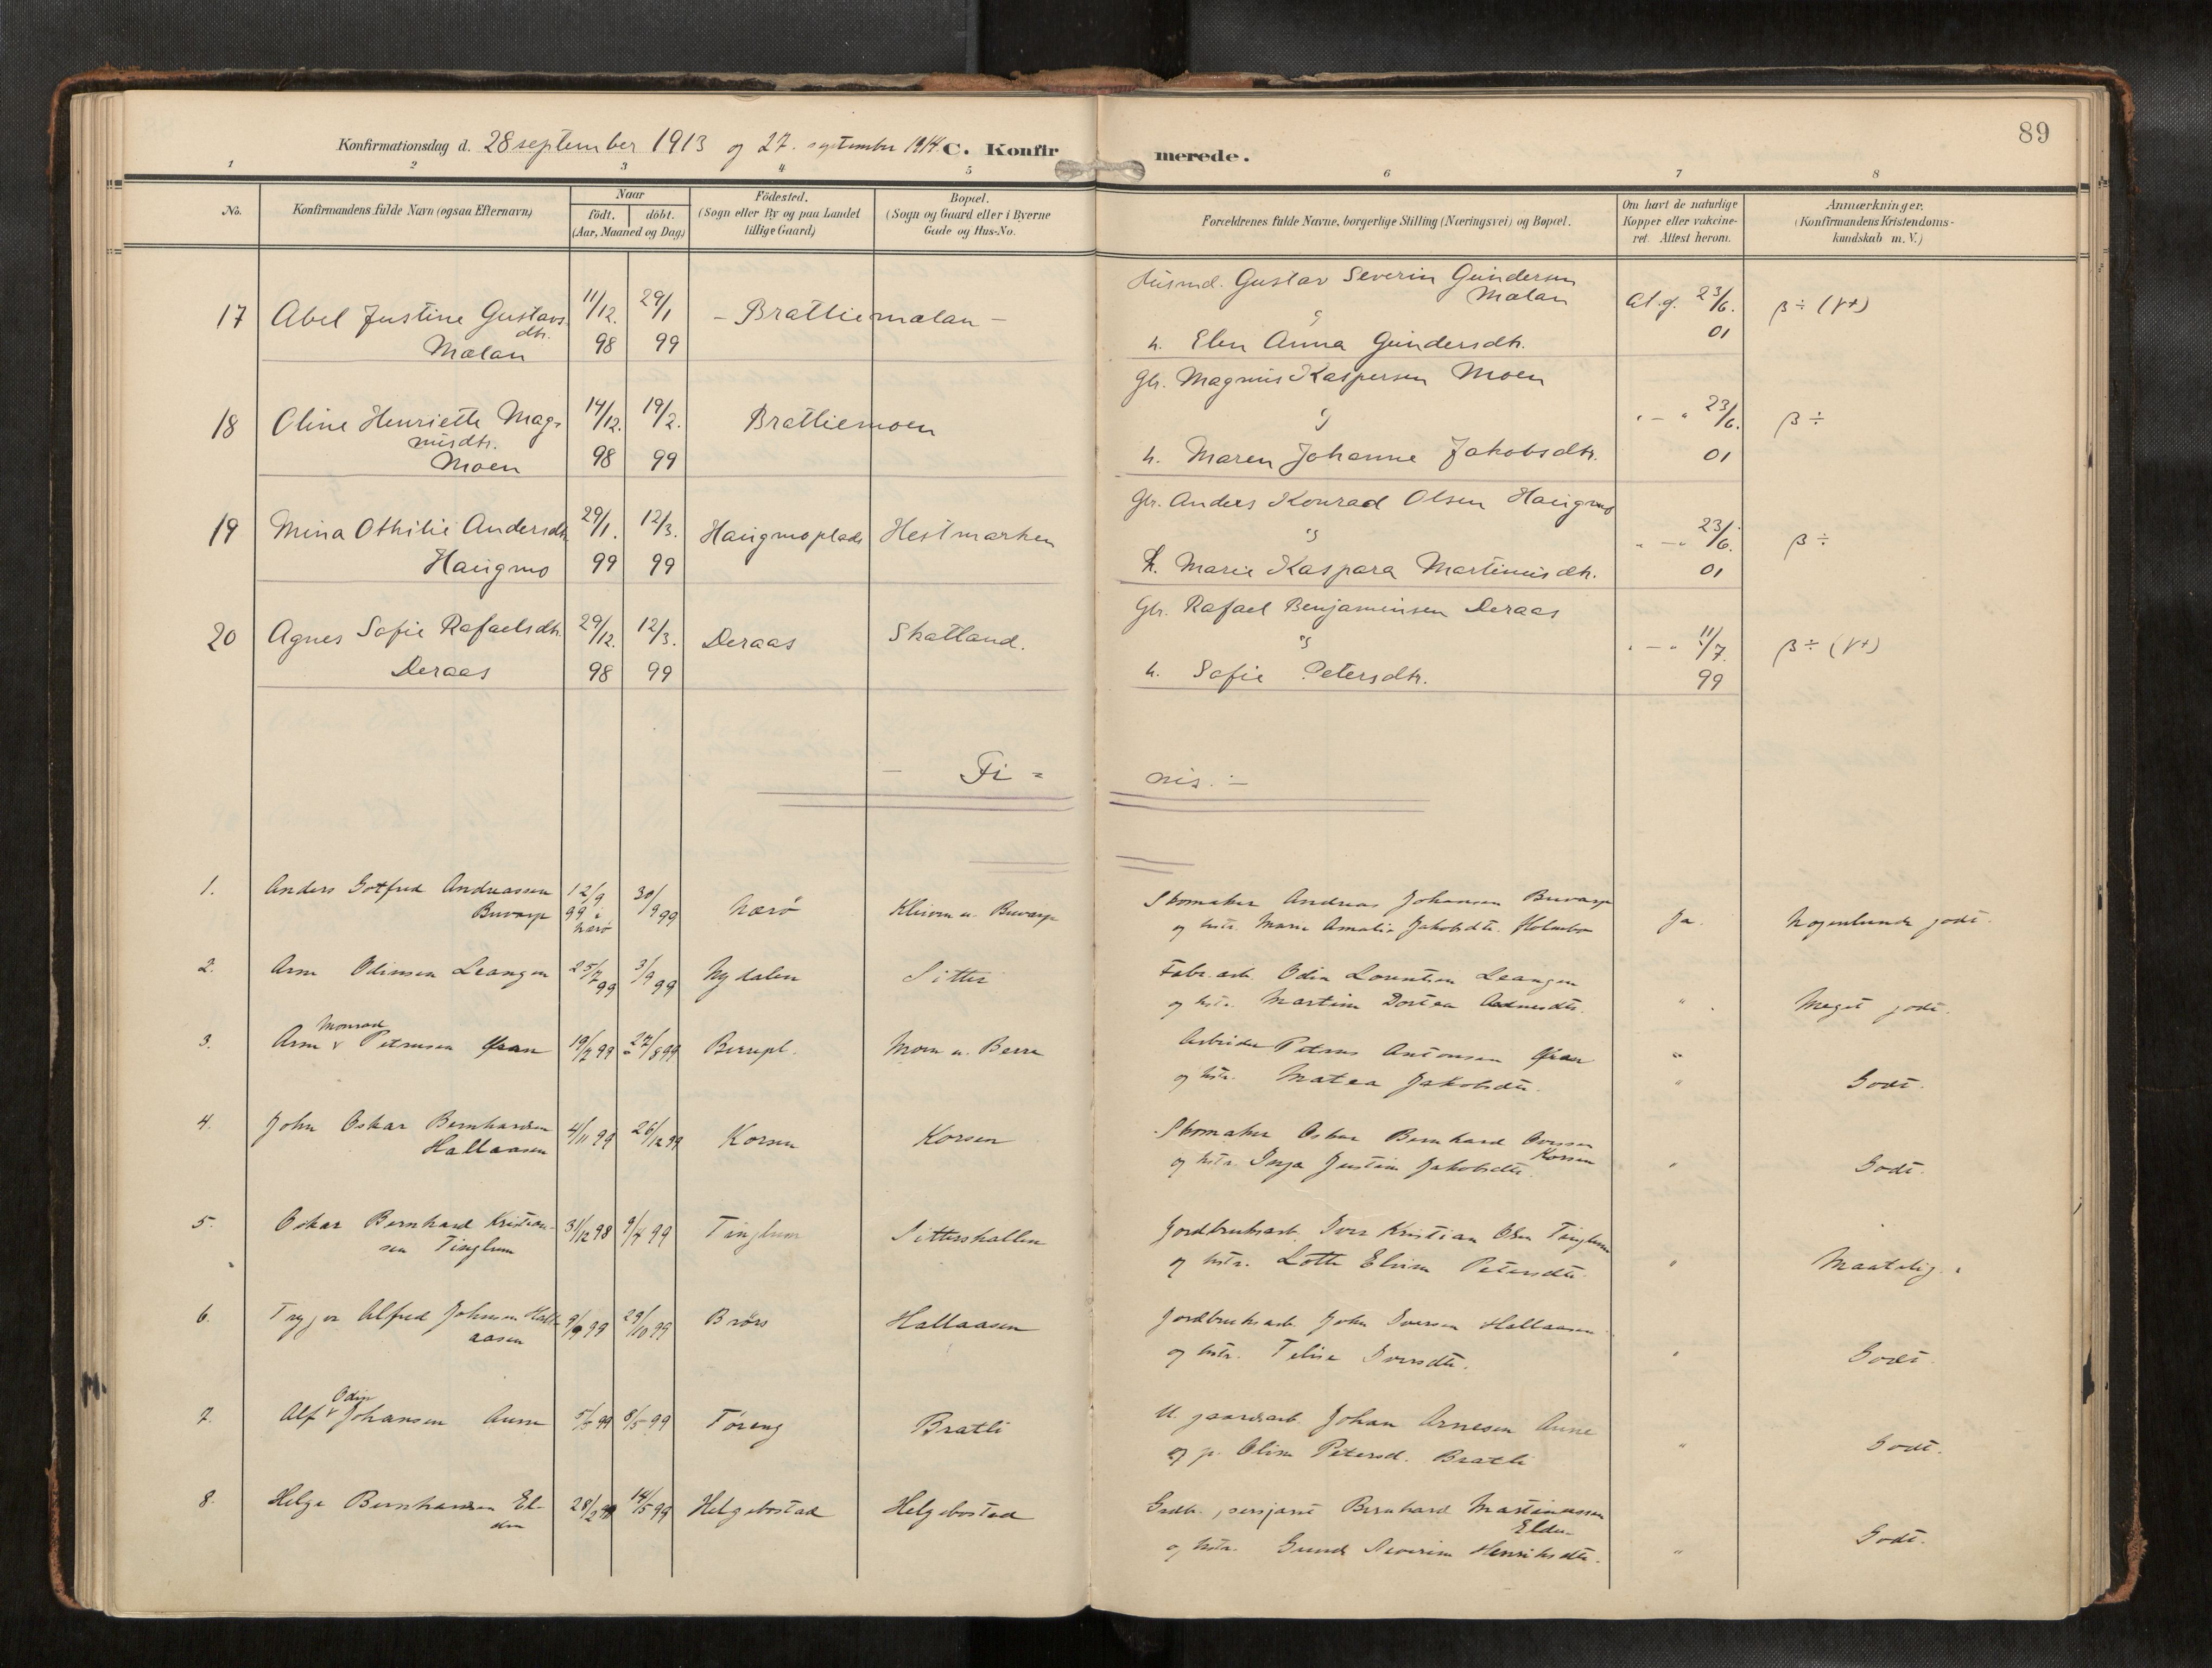 89
Konfirmationsdag d. 28 september 1913 og 27. september 1914. C. Konfirmerede.
1 2 3 4 5 6 7 8
No.
Konfirmandens fulde Navn (ogsaa Efternavn)
Naar
födt. döbt.
(Aar, Maaned og Dag)
Födested.
(Sogn eller By og paa Landet
tillige Gaard)
Bopæl.
(Sogn og Gaard eller i Byerne
Gade og Hus-No.
Forældrenes fulde Navne, borgerlige Stilling (Næringsvei) og Bopæl.
Om havt de naturlige
Kopper eller vakcine-
ret. Attest herom.
Anmærkninger.
(Konfirmandens Kristendoms-
kundskab m. V.)
Husmd. Gustav Severin Gundersen
Mælan
17 Abel Justine Gustavs 11/12. 29/1 - Brattiemælan - At. g. 23/6. β ÷ (γ+)
dtr.
Mælan 98 99 h. Elen Anna Gundersdtr. 01
Gbr. Magnus Kaspersen Moen
18 Oline Henriette Mag- 14/12. 19/2. Brattiemoen " — " 23/6. β ÷
nusdtr.
Moen 98 99 h. Maren Johanne Jakobsdtr. 01
Gbr. Anders Konrad Olsen Haugmo
19 Mina Othilie Andersdtr 29/1. 12/3. Haugmoplads Hestmarken " — " 23/6. β ÷
Haugmo 99 99 h. Marie Kaspara Martinusdtr. 01
Gbr. Rafael Benjaminsen Deraas
20 Agnes Sofie Rafaelsdtr. 29/12. 12/3. Deraas Skatland. " — " 11/7. β ÷ (γ+)
Deraas 98 99 h. Sofie Petersdtr. 99
— Fi = nis. —
1. Anders Gotfred Andreassen 12/9 30/9 99 Nærö Skomaker Andreas Johansen Buvarp
Buvarp 99 i Nærö Buvarp og hstr. Marie Amalie Jakobsdtr. Holmbo Ja. Nogenlunde godt.
2. Arne Odinsen Leangen 25/7 99 3/9 99 Nydalen Sitter Fabr. arb. Odin Leangen
og hstr. Martine Dortea " Meget godt.
Monrad
3. Arne v Petersen 19/7 99 27/8 99 Berrepl. Moen u. Berre Arbeider Antonsen "
og hstr. Matea Jakobsdtr. " Godt.
4. John Oskar Bernhardsen 4/11 99 26/12 99 Korsen Korsen Skomaker Oskar Bernhard
Hallaasen Korsen
og hstr. Inga Justine Jakobsdtr. " Godt.
5. Oskar Bernhard Kristian- 31/12 98 9/4 99 Tinglum Sitterhallen Jordbruksarb. Iver Kristian Olsen Tinglum
sen Tinglum og hstr. Lotte Elvine Petersdtr. " Maatelig.
6. Trygve Alfred Johnsen Hall- 9/9 99 29/10 99 Brörs Hallaasen Jordbruksarb. John Iversen Hallaasen
aasen og hstr. Iversdtr. " Godt.
Odin
7. Alf v Johansen Aune 5/3 99 8/5 99 Töreng Bratli U. gaardarb. Johan Arnesen Aune
og p. Oline Petersd. Bratli " Godt.
8. Helge Bernhardsen El- 28/2 99 14/5 99 Helgebostad Helgebostad Gndb., sersjant Bernhard Martinussen
den Elden
og hstr. Severine Henriksdtr. " Godt.